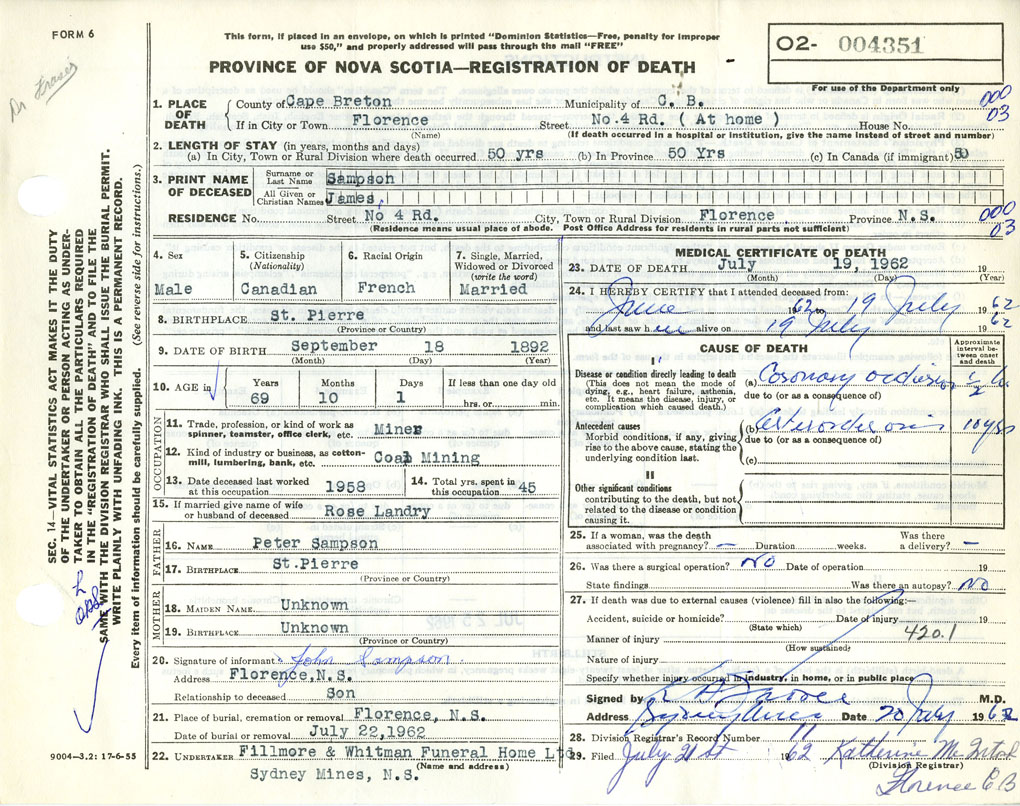 FORM 6
Dr Fraser
This form, if placed in an envelope, on which is printed "Dominion Statistics—Free, penalty for improper
use $50," and properly addressed will pass through the mail "FREE"
PROVINCE OF NOVA SCOTIA—REGISTRATION OF DEATH
02- 004351
For use of the Department only
000
03
1. PLACE OF DEATH
County of Cape Breton Municipality of C. B.
If in City or Town Florence Street No.4 Rd. ( At home ) House No.
(Name) (If death occurred in a hospital or institution, give the name instead of street and number)
2. LENGTH OF STAY (in years, months and days)
(a) In City, Town or Rural Division where death occurred 50 yrs (b) In Province 50 Yrs (c) In Canada (if immigrant) 50
3. PRINT NAME OF DECEASED
Surname or Last Name Sampson
All Given or Christian Names James
RESIDENCE No. Street No 4 Rd. City, Town or Rural Division Florence Province N.S.
(Residence means usual place of abode. Post Office Address for residents in rural parts not sufficient)
000
03
4. Sex Male
5. Citizenship (Nationality) Canadian
6. Racial Origin French
7. Single, Married, Widowed or Divorced (write the word) Married
8. BIRTHPLACE St. Pierre
(Province or Country)
9. DATE OF BIRTH September 18 1892
(Month) (Day) (Year)
10. AGE in Years Months Days If less than one day old
69 10 1 hrs. or min.
OCCUPATION
11. Trade, profession, or kind of work as spinner, teamster, office clerk, etc. Miner
12. Kind of industry or business, as cotton-mill, lumbering, bank, etc. Coal Mining
13. Date deceased last worked at this occupation 1958
14. Total yrs. spent in this occupation 45
15. If married give name of wife or husband of deceased Rose Landry
FATHER
16. NAME Peter Sampson
17. BIRTHPLACE St.Pierre
(Province or Country)
MOTHER
18. MAIDEN NAME Unknown
19. BIRTHPLACE Unknown
(Province or Country)
20. Signature of informant John Sampson
Address Florence,N.S.
Relationship to deceased Son
21. Place of burial, cremation or removal Florence, N.S.
Date of burial or removal July 22,1962
22. UNDERTAKER Fillmore & Whitman Funeral Home Ltd.
(Name and address)
Sydney Mines, N.S.
MEDICAL CERTIFICATE OF DEATH
23. DATE OF DEATH July 19, 1962 19
(Month) (Day) (Year)
24. I HEREBY CERTIFY that I attended deceased from:
June 1962 to 19 July 1962
and last saw him alive on 19 July 1962
CAUSE OF DEATH
Approximate interval between onset and death
I
Disease or condition directly leading to death
(This does not mean the mode of dying, e.g., heart failure, asthenia, etc. It means the disease, injury, or complication which caused death.)
(a) Coronary occlusion
due to (or as a consequence of)
Antecedent causes
Morbid conditions, if any, giving rise to the above cause, stating the underlying condition last.
(b) 10 yrs
due to (or as a consequence of)
(c)
II
Other significant conditions
contributing to the death, but not related to the disease or condition causing it.
25. If a woman, was the death associated with pregnancy? — Duration weeks. Was there a delivery? —
26. Was there a surgical operation? NO Date of operation 19
State findings Was there an autopsy? NO
27. If death was due to external causes (violence) fill in also the following:—
Accident, suicide or homicide? Date of injury 19
(State which)
420.1
Manner of injury
(How sustained)
Nature of injury
Specify whether injury occurred in industry, in home, or in public place
Signed by M.D.
Address Sydney Mines Date 20 July 1962
28. Division Registrar's Record Number 11
29. Filed July 21st 1962 Katherine McIntosh
(Division Registrar)
Florence C B
SEC. 14—VITAL STATISTICS ACT MAKES IT THE DUTY
OF THE UNDERTAKER OR PERSON ACTING AS UNDER-
TAKER TO OBTAIN ALL THE PARTICULARS REQUIRED
IN THE "REGISTRATION OF DEATH" AND TO FILE THE
SAME WITH THE DIVISION REGISTRAR WHO SHALL ISSUE THE BURIAL PERMIT.
WRITE PLAINLY WITH UNFADING INK. THIS IS A PERMANENT RECORD.
Every item of information should be carefully supplied. (See reverse side for instructions.)
9004—3.2: 17-6-55